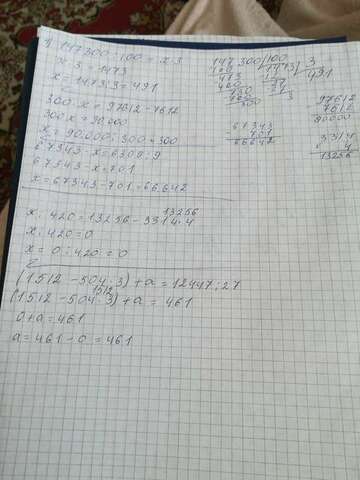 1. 147300:100 = x·3
x·3 = 1473
x = 1473:3 = 491
300·x = 97612 - 7612
300x = 90.000
x = 90.000:300 = 300
67343 - x = 6309:9
67343 - x = 701
x = 67343 - 701 = 66642
x:420 = 13256 - 3314·4
13256
x:420 = 0
x = 0:420 = 0
(1512 - 504·3) + a = 12447:27
1512
(1512 - 504·3) + a = 461
0 + a = 461
a = 461 - 0 = 461
147300/100
1473/3
491
97612
7612
90000
67343
701
66642
3314
4
13256